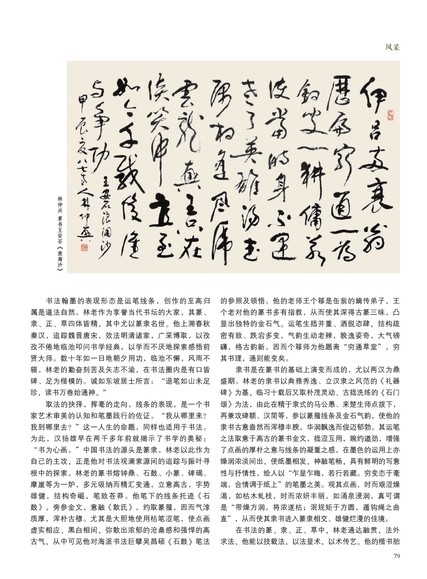 风采
伊呂兩衰翁
歷遍窮通一為
釣叟一耕傭若
使當時身不遇
老了英雄湯武
偶相逢風虎
雲龍興王只在
談笑中直至
如今千載後誰
與爭功
王安石浪淘沙
林仲兴 草书王安石《浪淘沙》
书法翰墨的表现形态是运笔线条，创作的至高归
属是道法自然。林老作为享誉当代书坛的大家，其篆、
隶、正、草四体皆精，其中尤以篆隶名世。他上溯春秋
秦汉，追踪魏晋唐宋，效法明清诸家，广采博取，以孜
孜不倦地临池叩问书学经典，以学而不厌地探求感悟前
贤大师。数十年如一日地朝夕用功，临池不懈，风雨不
辍，林老的勤奋刻苦及矢志不渝，在书法圈内是有口皆
碑、足为楷模的。诚如东坡居士所言：“退笔如山未足
珍，读书万卷始通神。”
取法的抉择，挥毫的走向，线条的表现，是一个书
家艺术审美的认知和笔墨践行的佐证。“我从哪里来？
我到哪里去？”这一人生的命题，同样也适用于书法。
为此，汉扬雄早在两千多年前就揭示了书学的奥秘：
“书为心画。”中国书法的源头是篆隶。林老以此作为
自己的主攻，正是他对书法观澜索源问的追踪与振叶寻
根中的探索。林老的篆书熔钟鼎、石鼓、小篆、碑碣、
摩崖等为一炉，多元吸纳而精汇变通，立意高古，字势
雄健，结构奇崛，笔致苍莽。他笔下的线条托迹《石
鼓》，旁参金文，意融《散氏》，约取篆籀，因而气淳
质厚，浑朴古穆。尤其是大胆地使用枯笔涩笔，使点画
虚实相应、黑白相间，弥散出浓郁的沧桑感和强悍的高
古气，从中可见他对海派书法巨擘吴昌硕《石鼓》笔法
的参照及领悟。他的老师王个簃是缶翁的嫡传弟子，王
个老对他的篆书多有指教，从而使其深得古篆三昧，凸
显出独特的金石气。运笔生拙并重、洒脱恣肆，结构疏
密有致、跌宕多变，气韵生动老辣，貌逸姿奇，大气磅
礴，格古韵新。因而个簃师为他题斋“穷通草堂”，穷
其书理，通则能变矣。
隶书是在篆书的基础上演变而成的，尤以两汉为鼎
盛期。林老的隶书以典雅秀逸、立汉隶之风范的《礼器
碑》为基，临习十载后又取朴茂灵动、古拙洗练的《石门
颂》为法，由此在精于隶式的马公愚、来楚生师点拨下，
再兼攻碑额、汉简等，参以篆籀线条及金石气韵，使他的
隶书古意盎然而浑穆丰腴，华润飘逸而俊迈郁勃。其运笔
之法取意于高古的篆书金文，拙涩互用，婉约遒劲，增强
了点画的厚朴之意与线条的凝重之感。在墨色的运用上亦
燥润浓淡间出，使纸墨相发，神融笔畅，具有鲜明的写意
性与抒情性，给人以“乍显乍晦，若行若藏。穷变态于毫
端，合情调于纸上”的笔墨之美。观其点画，时而艰涩燥
渴，如枯木虬枝，时而浓妍丰丽，如涌泉浸润，真可谓
是“带燥方润，将浓遂枯；泯规矩于方圆，遁钩绳之曲
直”，从而使其隶书进入篆隶相交、雄健烂漫的佳境。
在书法的篆、隶、正、草中，林老通达融贯，法外
求法，他能以技载法，以法显术，以术传艺。他的楷书胎
79